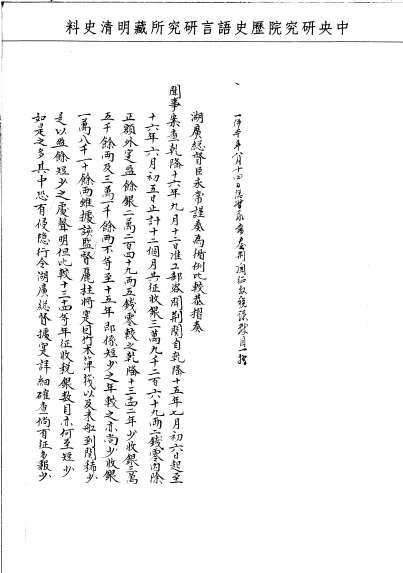 中央研究院歷史語言研究所藏明清史料
湖廣總督臣永常謹奏為循例比較恭摺奏
聞事案查乾隆十六年九月十二日准工部咨開荊關自乾隆十五年七月初六日起至
十六年六月初五日止計十二個月共征收銀三萬九千二百六十九兩二錢零內除
正額外實盈餘銀二萬二百四十九兩五錢零較之乾隆十三四二年少收銀三萬
五千餘兩及三萬一千餘兩不等至十五年即係短少之年較之亦尚少收銀
一萬八千一十餘兩雖據該監督麗柱將實因竹木簰筏以及米船到關稀少
是以盈餘短少之處聲明但比較十三四等年征收稅銀數目亦何至短少
如是之多其中恐有侵隱行令湖廣總督據實詳細確查倘有征多報少